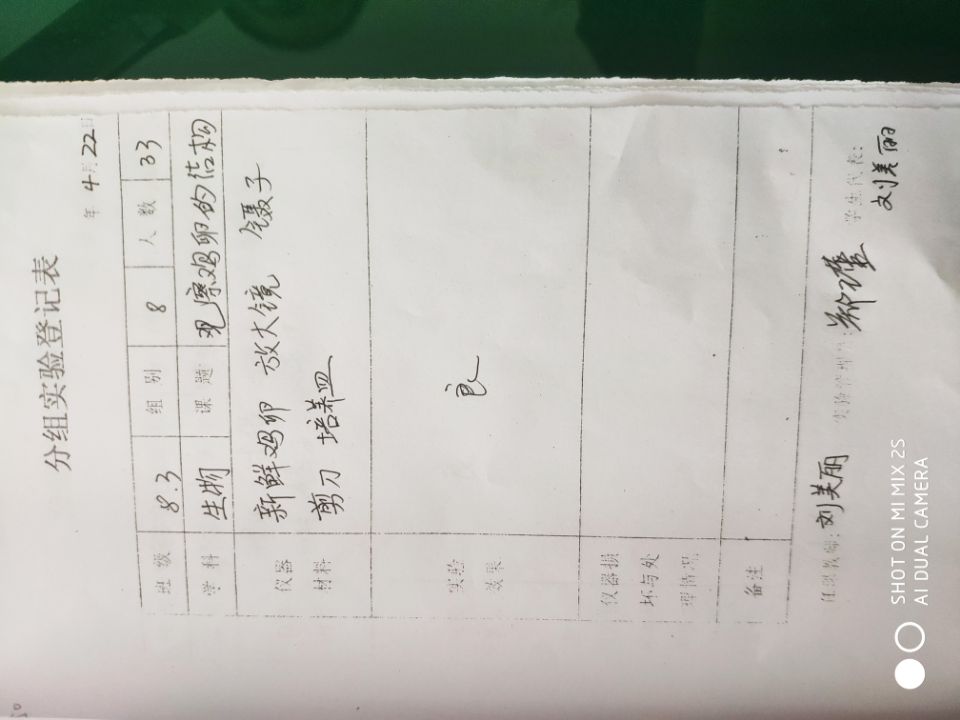 分组实验登记表
年 4月22日
班级 8.3 组别 8 人数 33
学科 生物 课题 观察鸡卵的结构
仪器 新鲜鸡卵 放大镜 镊子
材料 剪刀 培养皿
实验
效果 良
仪器损
坏与处
理情况
备注
任课教师: 刘美丽 实验管理员: 学生代表:
刘美丽
SHOT ON MI MIX 2S
AI DUAL CAMERA